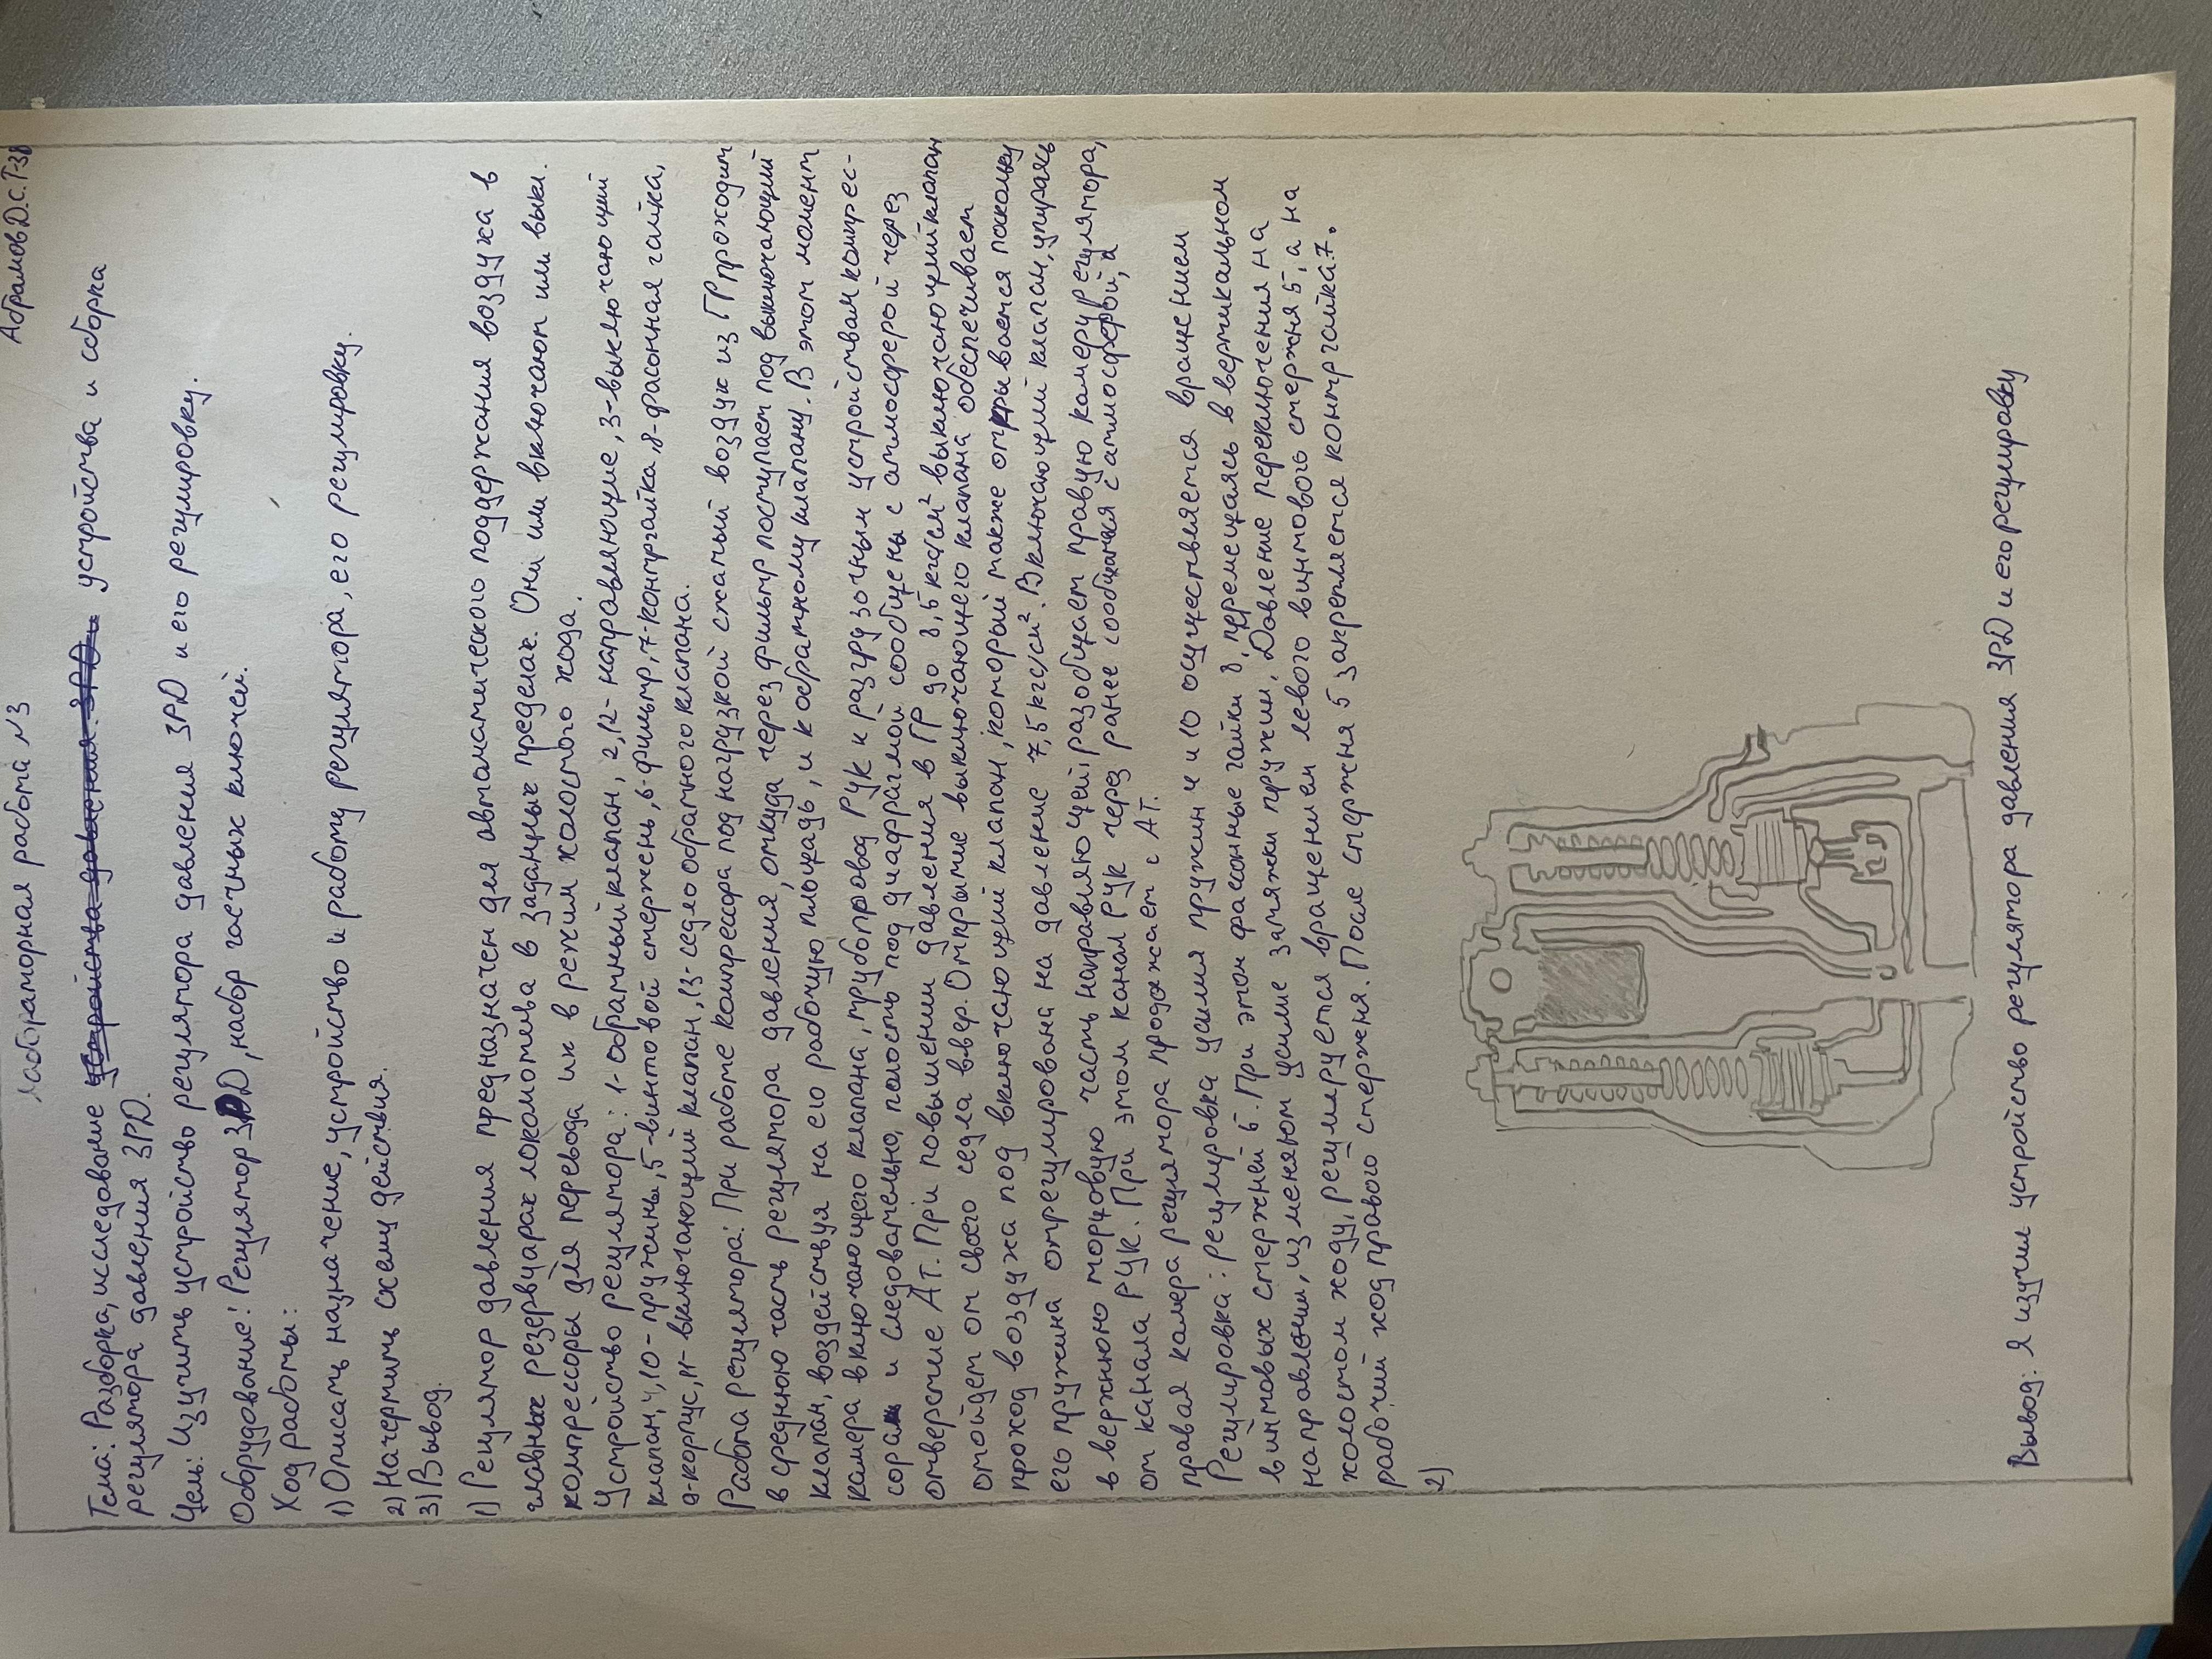 Абрамов Д.С. Т-38
Лабораторная работа №3
Тема: Разборка, исследование устройства и сборка
регулятора давления ЗРД.
Цель: Изучить устройство регулятора давления ЗРД и его регулировку.
Оборудование: Регулятор ЗРД, набор гаечных ключей.
Ход работы:
1) Описать назначение, устройство и работу регулятора, его регулировку.
2) Начертить схему действия.
3) Вывод.
1) Регулятор давления предназначен для автоматического поддержания воздуха в
главных резервуарах локомотива в заданных пределах. Они или включают или выкл.
компрессоры для перевода их в режим холостого хода.
Устройство регулятора: 1-обратный клапан, 2,12-направляющие, 3-выключающий
клапан, 4,10-пружины, 5-винтовой стержень, 6-фильтр, 7-контргайка, 8-фасонная гайка,
9-корпус, 11-включающий клапан, 13-седло обратного клапана.
Работа регулятора: При работе компрессора под нагрузкой сжатый воздух из ГР проходит
в среднюю часть регулятора давления, откуда через фильтр поступает под выключающий
клапан, воздействуя на его рабочую площадь, и к обратному клапану. В этот момент
камера включающего клапана, трубопровод РУК к разгрузочным устройствам компрес-
сора и следовательно, полость под диафрагмой сообщены с атмосферой через
отверстие Ат. При повышении давления в ГР до 8,5 кгс/см² выключающий клапан
отойдет от своего седла вверх. Открытие выключающего клапана обеспечивает
проход воздуха под включающий клапан, который также открывается поскольку
его пружина отрегулирована на давление 7,5 кгс/см². Включающий клапан, упираясь
в верхнюю торцовую часть направляющей, разобщает правую камеру регулятора,
от канала РУК. При этом канал РУК через ранее сообщался с атмосферой, а
правая камера регулятора продолжает с Ат.
Регулировка: регулировка усилия пружин 4 и 10 осуществляется вращением
винтовых стержней 6. При этом фасонные гайки 8, перемещаясь в вертикальном
направлении, изменяют усилие затяжки пружин. Давление переключения на
холостом ходу, регулируется вращением левого винтового стержня 5, а на
рабочий ход правого стержня. После стержня 5 закрепляется контргайка 7.
2)
Вывод: Я изучил устройство регулятора давления ЗРД и его регулировку